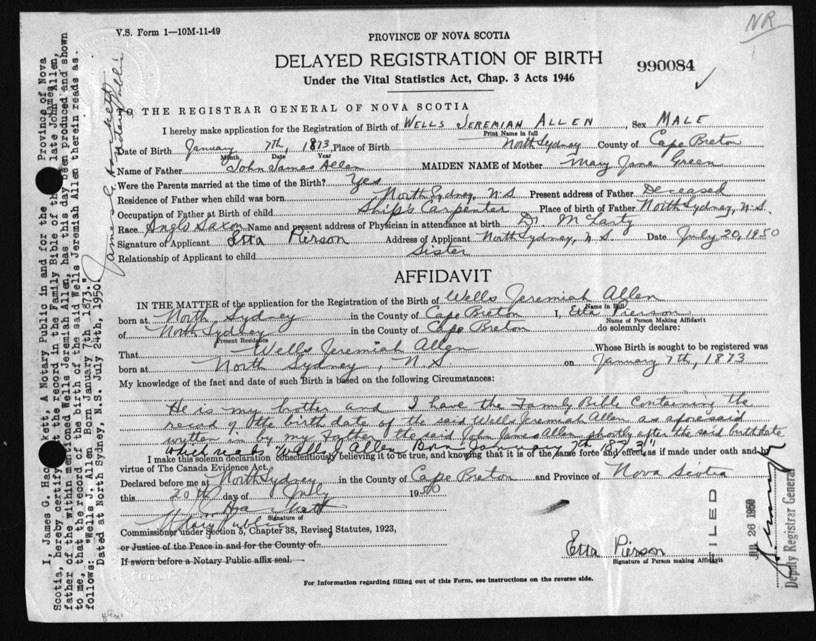 NR
V.S. Form 1—10M-11-49
PROVINCE OF NOVA SCOTIA
DELAYED REGISTRATION OF BIRTH
990084
Under the Vital Statistics Act, Chap. 3 Acts 1946
TO THE REGISTRAR GENERAL OF NOVA SCOTIA
I hereby make application for the Registration of Birth of WELLS JEREMIAH ALLEN, Sex MALE
Print Name in full
Date of Birth January 7th, 1873, Place of Birth North Sydney County of Cape Breton
Month Date Year
Name of Father John James Allen MAIDEN NAME of Mother Mary Jane Green
Were the Parents married at the time of the Birth? Yes
Residence of Father when child was born North Sydney, N.S Present address of Father Deceased
Occupation of Father at Birth of child Ship's Carpenter Place of birth of Father North Sydney, N.S.
Race Anglo Saxon Name and present address of Physician in attendance at birth Dr McLarty
Signature of Applicant Etta Pierson Address of Applicant North Sydney, N.S. Date July 20, 1950
Relationship of Applicant to child Sister
AFFIDAVIT
IN THE MATTER of the application for the Registration of the Birth of Wells Jeremiah Allen
Name in Full
born at North Sydney in the County of Cape Breton I, Etta Pierson
Name of Person Making Affidavit
of North Sydney in the County of Cape Breton do solemnly declare:
Present Residence
That Wells Jeremiah Allen Whose Birth is sought to be registered was
born at North Sydney, N.S. on January 7th, 1873
My knowledge of the fact and date of such Birth is based on the following Circumstances:
He is my brother and I have the Family Bible containing the
record of the birth date of the said Wells Jeremiah Allen as aforesaid
written in by my Father the said John James Allen shortly after the said birthdate
which reads "Wells J. Allen Born January 7th 1873"
I make this solemn declaration conscientiously believing it to be true, and knowing that it is of the same force and effect as if made under oath and by
virtue of The Canada Evidence Act.
Declared before me at North Sydney in the County of Cape Breton and Province of Nova Scotia
this 20th day of July 1950
Signature of
Notary Public
Commissioner under Section 5, Chapter 38, Revised Statutes, 1923,
or Justice of the Peace in and for the County of
If sworn before a Notary Public affix seal.
Etta Pierson
Signature of Person making Affidavit
For Information regarding filling out of this Form, see Instructions on the reverse side.
FILED
JUL 26 1950
Deputy Registrar General
I, James G. Hackett, A Notary Public in and for the Province of Nova
Scotia, hereby certify that the record in the Family Bible of the late John James Allen,
father of the within mentioned Wells Jeremiah Allen has this day been produced and shown
to me, that the record of the birth of the said Wells Jeremiah Allen therein reads as
follows: "Wells J. Allen Born January 7th 1873."
Dated at North Sydney, N.S. July 24th, 1950.
James G Hackett
Notary Public